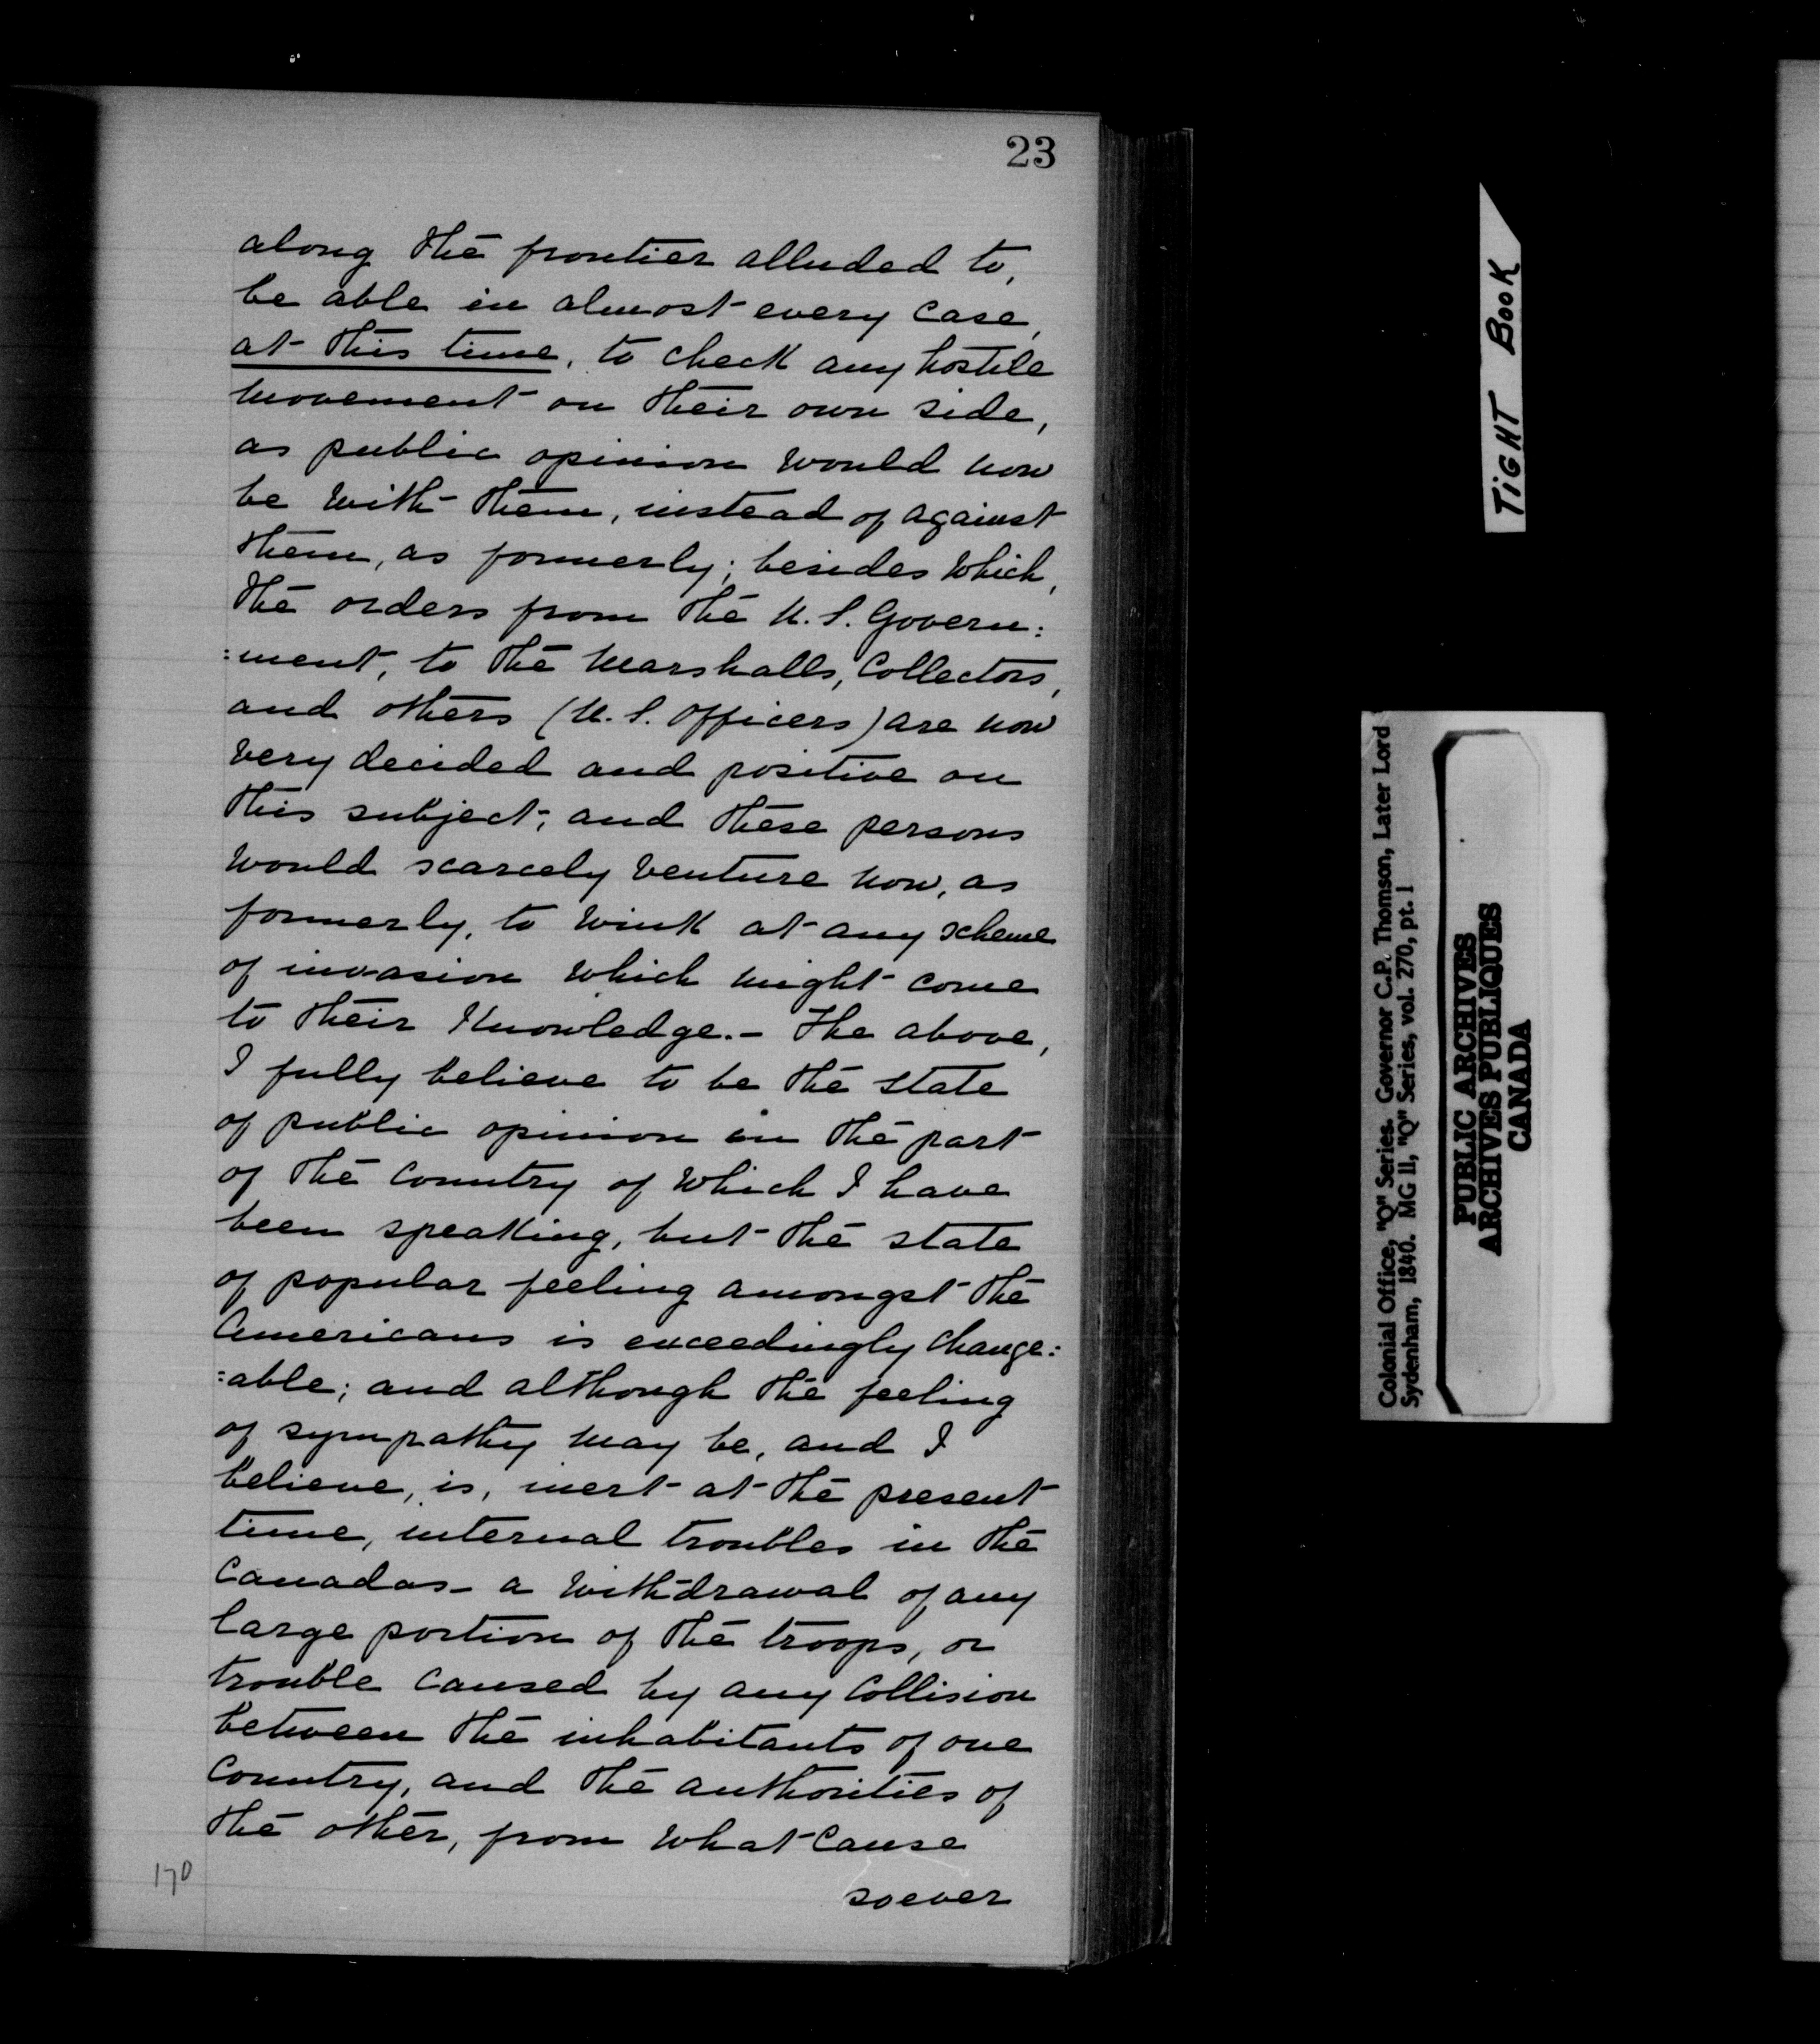 23
along the frontier alluded to,
be able in almost every case,
at this time, to check any hostile
movement on their own side,
as public opinion would now
be with them, instead of against
them, as formerly; besides which,
the orders from the U.S. Govern:
:ment, to the Marshalls, Collectors,
and others (U.S. officers) are now
very decided and positive on
this subject; and these persons
would scarcely venture now, as
formerly, to wink at any scheme
of invasion which might come
to their Knowledge.- The above,
I fully believe to be the state
of public opinion in the part
of the Country of which I have
been speaking, but the state
of popular feeling amongst the
Americans is exceedingly change:
:able; and although the feeling
of sympathy may be, and I
believe, is, inert at the present
time, internal troubles in the
Canadas - a withdrawal of any
large portion of the troops, or
trouble caused by any Collision
between the inhabitants of one
Country, and the authorities of
the other, from what cause
soever
170
TIGHT BOOK
Colonial Office, "Q" Series. Governor C.P. Thomson, Later Lord
Sydenham, 1840. MG 11, "Q" Series, vol. 270, pt. 1
PUBLIC ARCHIVES
ARCHIVES PUBLIQUES
CANADA